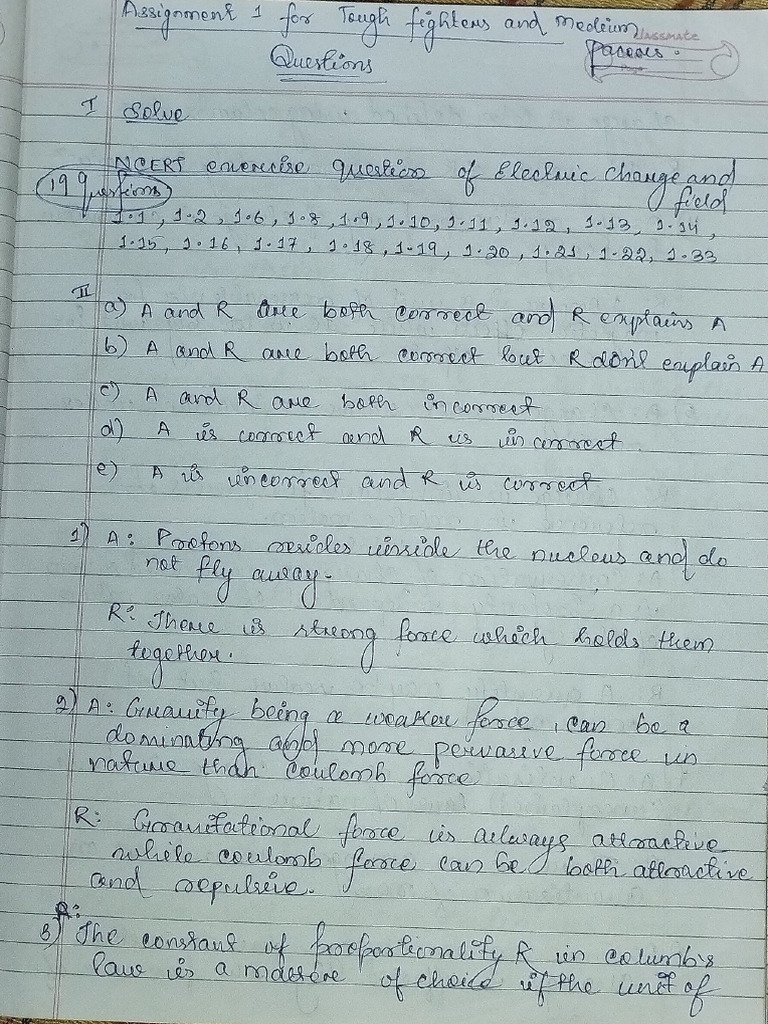 Assignment 1 for Tough fighters and medium
classmate
pacers.
Questions
I Solve
NCERT exercise question of Electric charge and
field
19 questions
1.1, 1.2, 1.6, 1.8, 1.9, 1.10, 1.11, 1.12, 1.13, 1.14,
1.15, 1.16, 1.17, 1.18, 1.19, 1.20, 1.21, 1.22, 1.33
II
a) A and R are both correct and R explains A
b) A and R are both correct but R don't explain A
c) A and R are both incorrect
d) A is correct and R is incorrect
e) A is incorrect and R is correct
1) A: Protons resides inside the nucleus and do
not fly away.
R: There is strong force which holds them
together.
2) A: Gravity being a weaker force, can be a
dominating and more pervasive force in
nature than coulomb force
R: Gravitational force is always attractive
while coulomb force can be both attractive
and repulsive.
A:
3) The constant of proportionality R in columb's
law is a matere of choice if the unit of